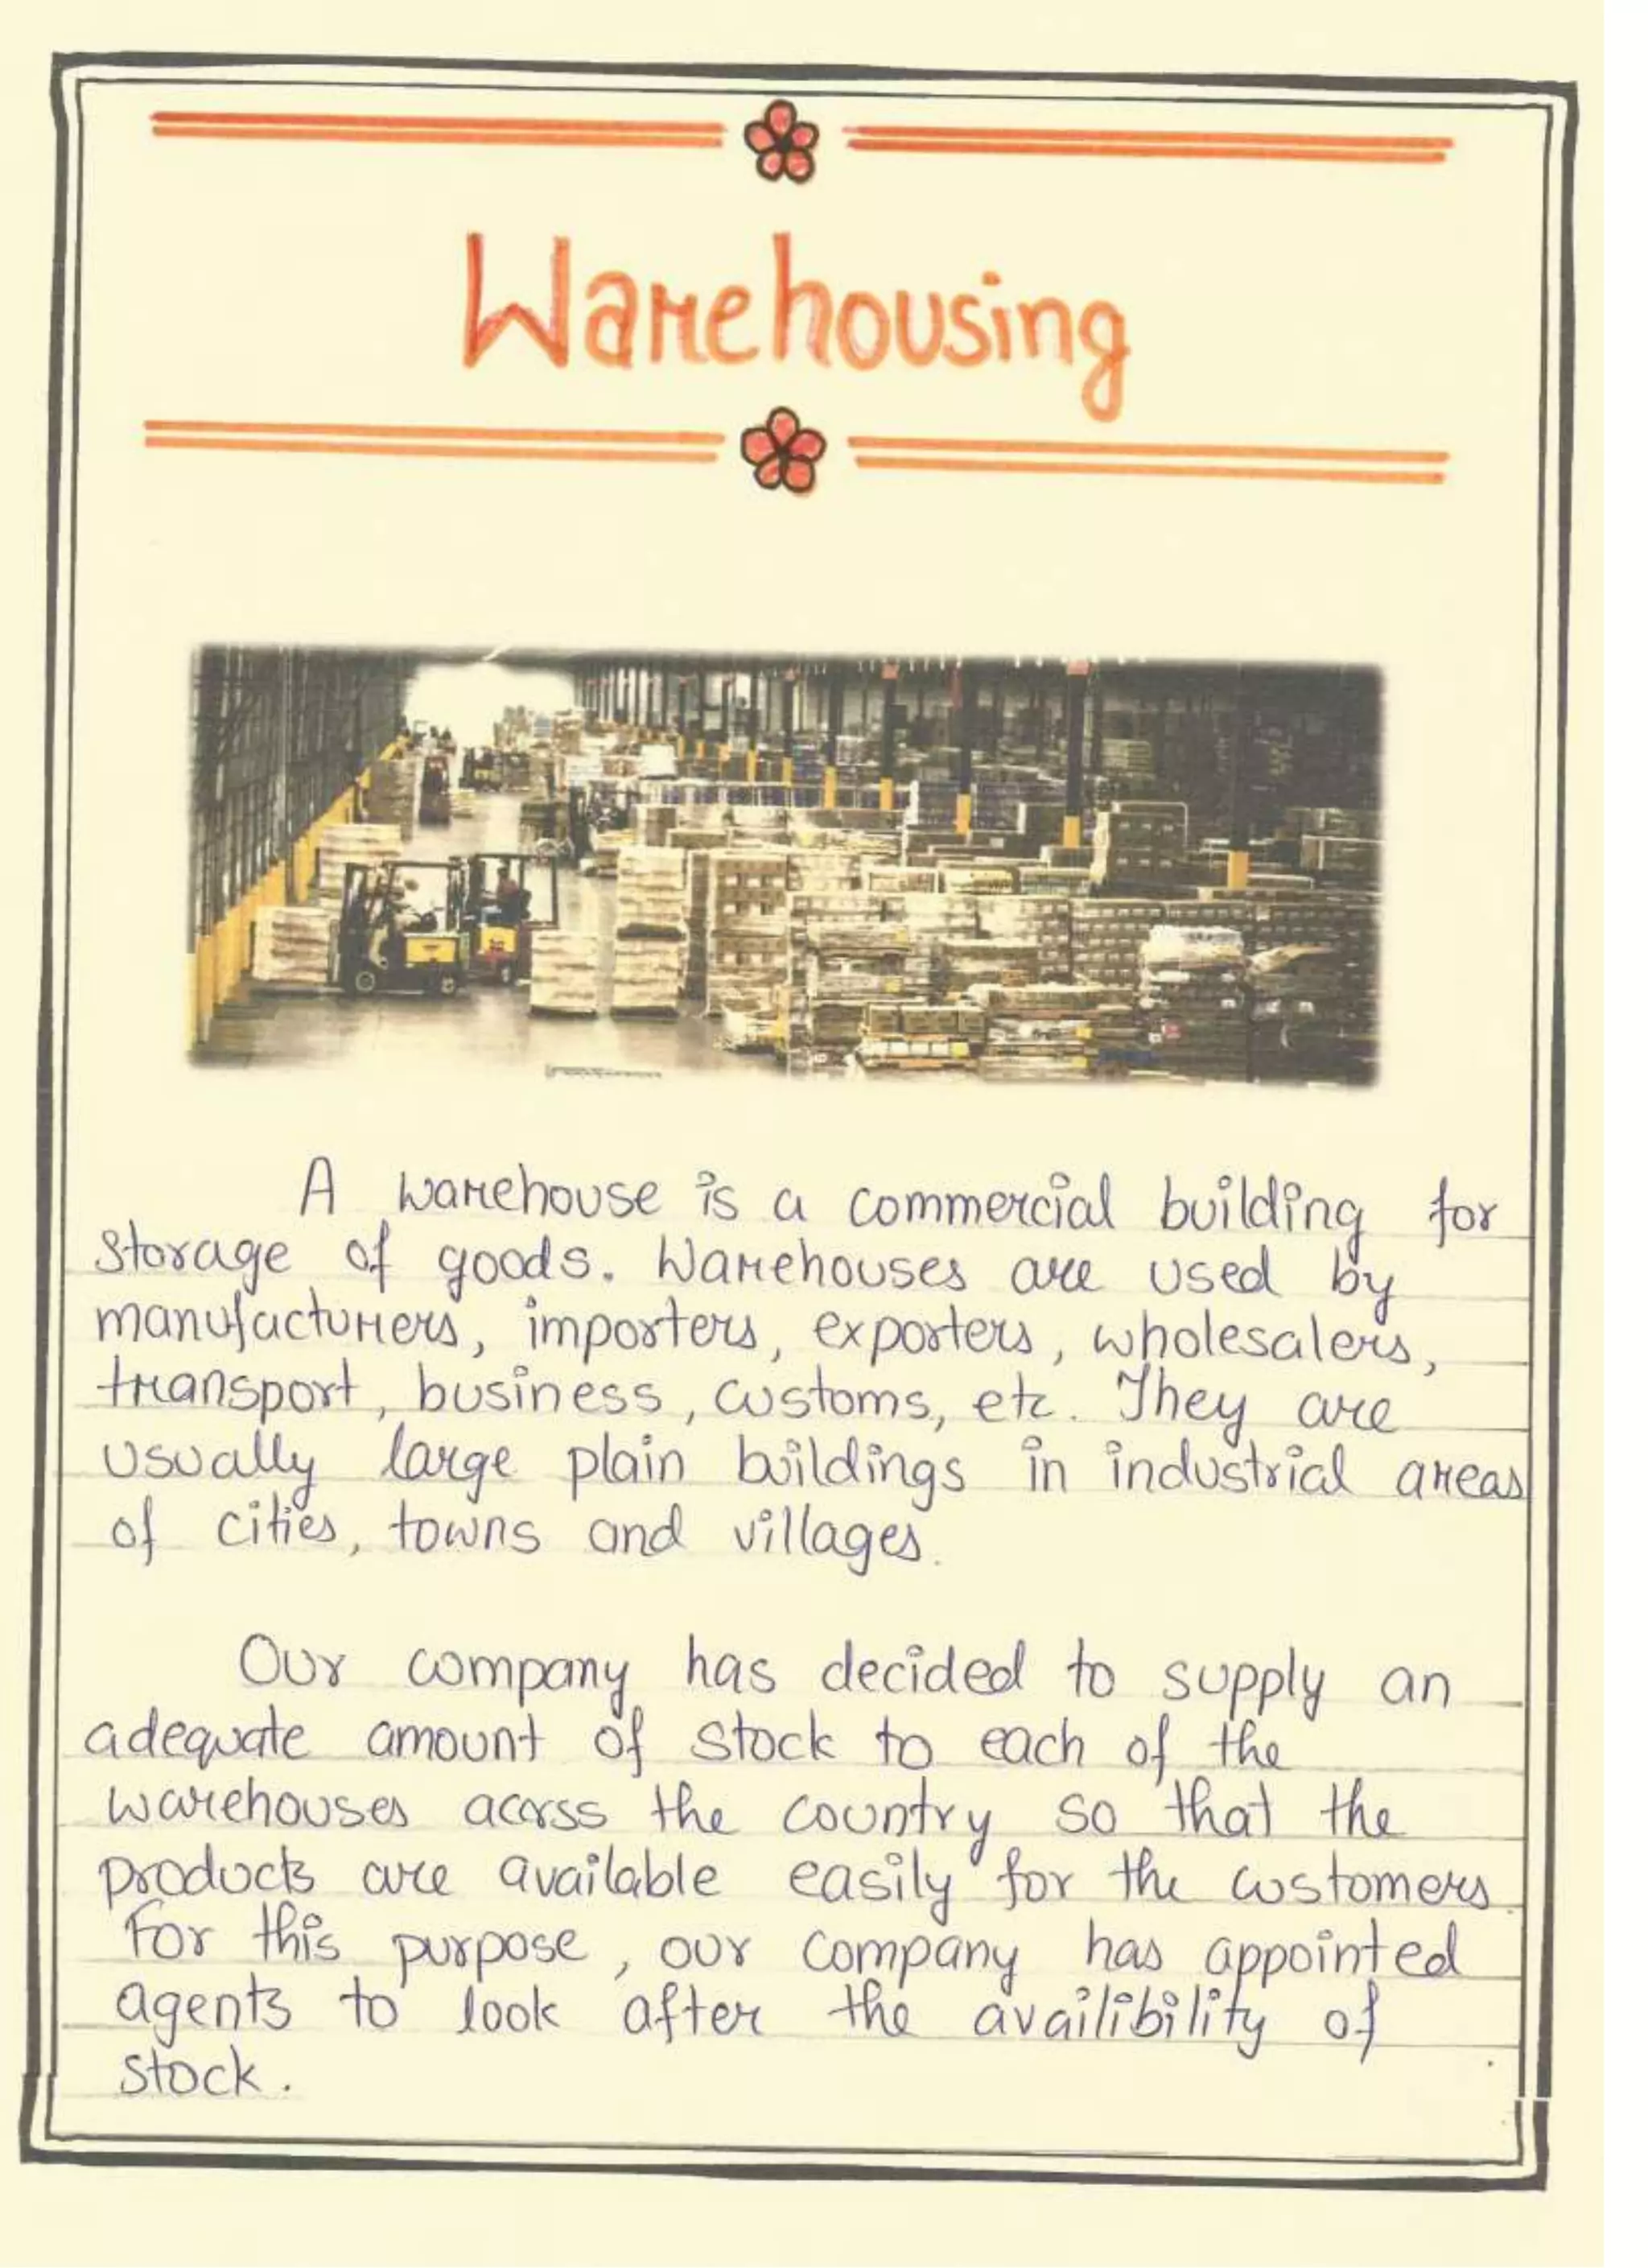 Warehousing
A warehouse is a commercial building for
storage of goods. Warehouses are used by
manufacturers, importers, exporters, wholesalers,
transport, business, customs, etc. They are
usually large plain buildings in industrial areas
of cities, towns and villages.
Our company has decided to supply an
adequate amount of stock to each of the
warehouses across the country so that the
products are available easily for the customers.
For this purpose, our company has appointed
agents to look after the availibility of
stock.